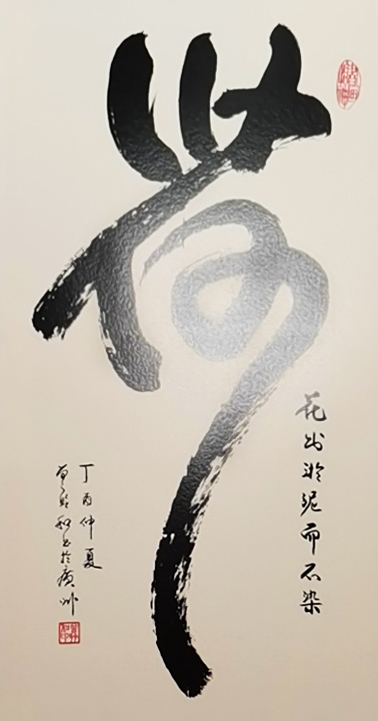 荷
花出淤泥而不染
丁酉仲夏
书於廣州